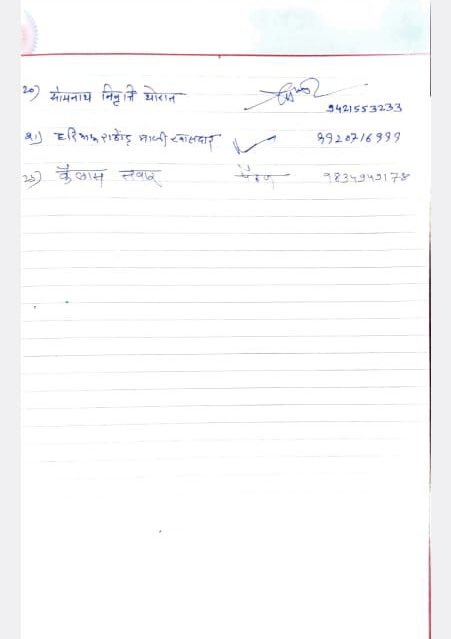 20) सोमनाथ निवृत्ती थोरात 9421553233
21) हरिभाऊ राठोड माजी खासदार 9920716999
23) कैलास तवार 9834949178